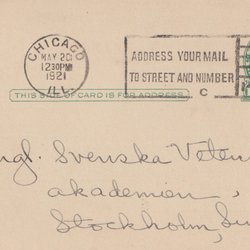 CHICAGO
MAY 20
1230PM
1921
ILL.
ADDRESS YOUR MAIL
TO STREET AND NUMBER
C
THIS SIDE OF CARD IS FOR ADDRESS
ngl. Svenska Veten
akademien,
Stockholm, Sw